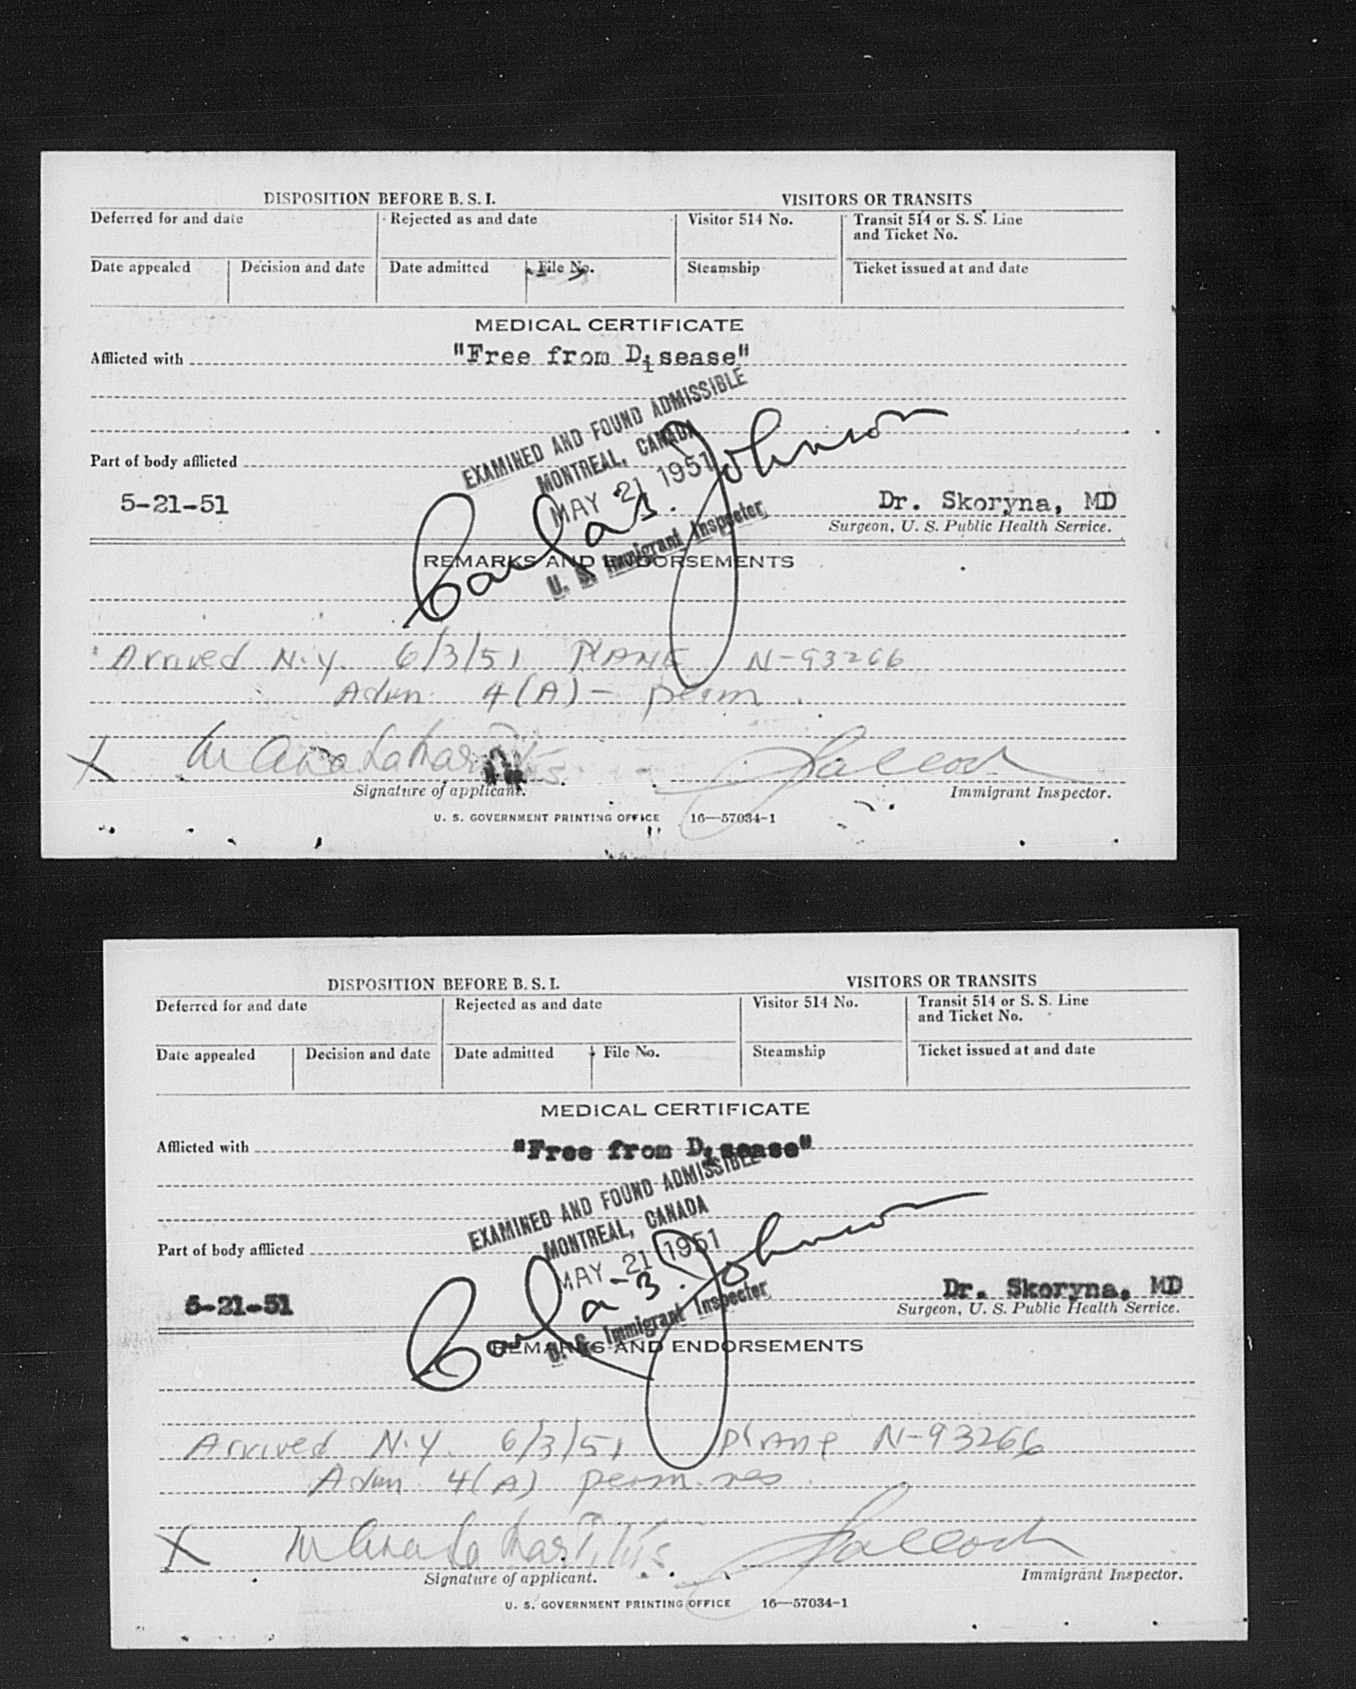 DISPOSITION BEFORE B. S. I.
VISITORS OR TRANSITS
Deferred for and date
Rejected as and date
Visitor 514 No.
Transit 514 or S. S. Line
and Ticket No.
Date appealed
Decision and date
Date admitted
File No.
Steamship
Ticket issued at and date
MEDICAL CERTIFICATE
Afflicted with "Free from Disease"
EXAMINED AND FOUND ADMISSIBLE
MONTREAL, CANADA
MAY 21 1951
U. S. Immigrant Inspector
Johnson
Part of body afflicted
5-21-51
Dr. Skoryna, MD
Surgeon, U. S. Public Health Service.
REMARKS AND ENDORSEMENTS
Arrived N.Y. 6/3/51 PLANE N-93266
Adm 4(A) - perm
X
Signature of applicant.
Immigrant Inspector.
U. S. GOVERNMENT PRINTING OFFICE 16—57034-1
DISPOSITION BEFORE B. S. I.
VISITORS OR TRANSITS
Deferred for and date
Rejected as and date
Visitor 514 No.
Transit 514 or S. S. Line
and Ticket No.
Date appealed
Decision and date
Date admitted
File No.
Steamship
Ticket issued at and date
MEDICAL CERTIFICATE
Afflicted with "Free from Disease"
EXAMINED AND FOUND ADMISSIBLE
MONTREAL, CANADA
MAY 21 1951
U. S. Immigrant Inspector
Johnson
Part of body afflicted
5-21-51
Dr. Skoryna, MD
Surgeon, U. S. Public Health Service.
REMARKS AND ENDORSEMENTS
Arrived N.Y. 6/3/51 Plane N-93266
Adm 4(A) perm. res.
X
Signature of applicant.
Immigrant Inspector.
U. S. GOVERNMENT PRINTING OFFICE 16—57034-1